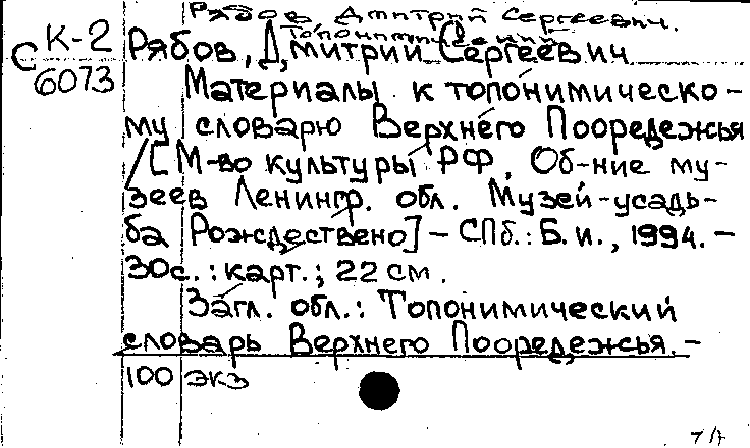 Рябов, Дмитрий Сергеевич.
Топонимический
С К-2
6073
Рябов, Дмитрий Сергеевич
Материалы к топонимическо-
му словарю Верхнего Поредежья
/[М-во культуры РФ, Об-ние му-
зеев Ленингр. обл. Музей-усадь-
ба Рождествено] – СПб.: Б.и., 1994. –
30с.: карт.; 22 см.
Загл. обл.: Топонимический
словарь Верхнего Поредежья. –
100 экз